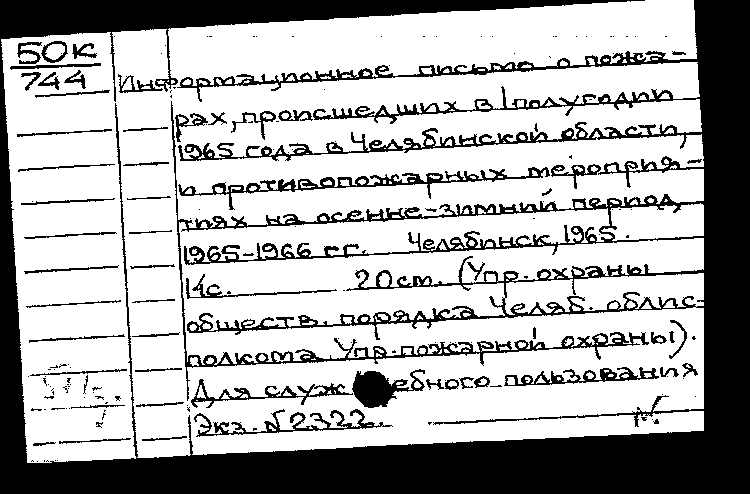 50к
744
Информационное письмо о пожа-
рах, происшедших в I полугодии
1965 года в Челябинской области,
и противопожарных мероприя-
тиях на осенне-зимний период
1965-1966 гг. Челябинск, 1965.
14с. 20см. (Упр. охраны
обществ. порядка Челяб. облис-
полкома. Упр. пожарной охраны).
Для служебного пользования
Экз. №2322.